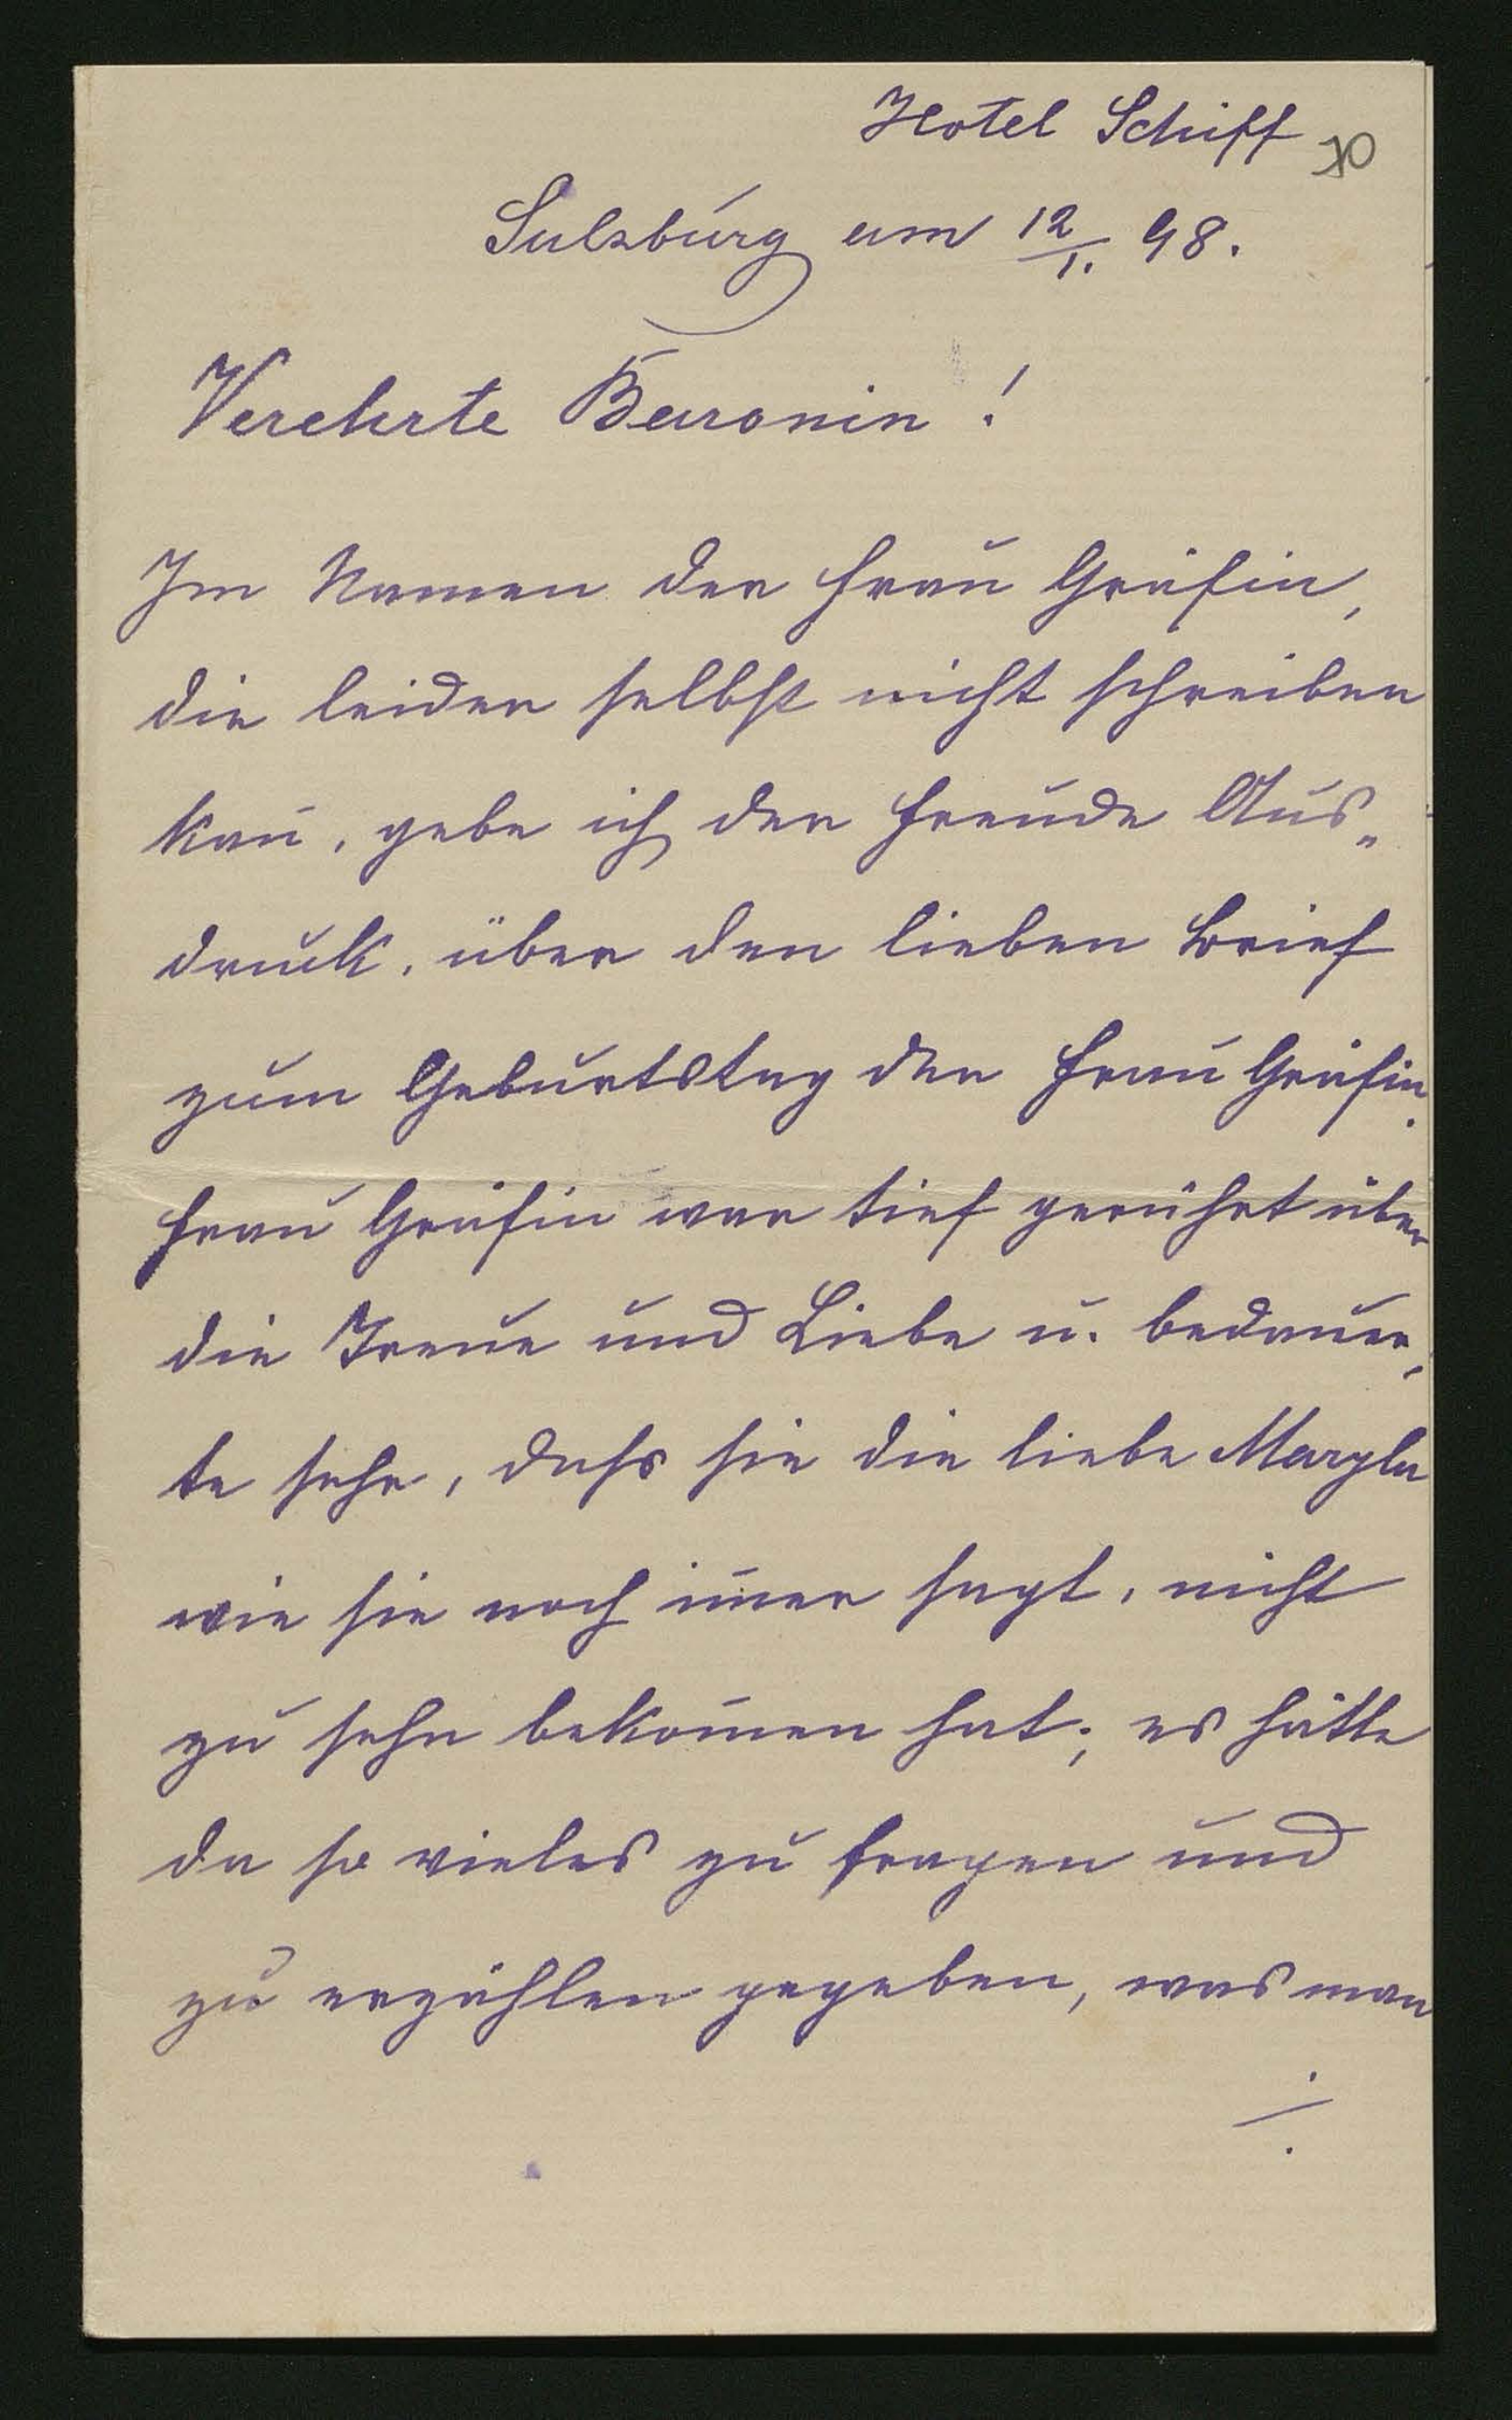 Hotel Schiff 30
Salzburg am 12/1. 98.
Verehrte Baronin!
Im Namen der Frau Gräfin,
die leider selbst nicht schreiben
kan̄, gebe ich der Freude Aus„
druck, über den lieben Brief
zum Geburtstag der Frau Gräfin.
Frau Gräfin war tief gerührt über
die Treue und Liebe u. bedauer„
te sehr, dass sie die liebe
wie sie noch im̄er sagt, nicht
zu sehn bekom̄en hat; es hätte
da so vieles zu fragen und
zu erzählen gegeben, was man
./.